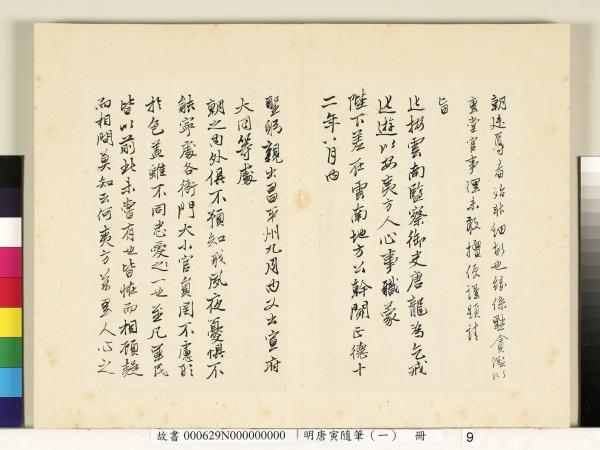 朝廷治非細故也緣係黜貪濫以
重堂官事理未敢擅便謹題請
旨
巡按雲南監察御史唐龍為乞戒
巡遊以安夷方人心事職蒙
陛下差在雲南地方公幹聞正德十
二年八月內
聖躬親出昌平州九月內又出宣府
大同等處
朝之內外俱不預知夙夜憂惧不
能寧處各衙門大小官員罔不慮形
於色蓋雖不同忠愛之一也並凡軍民
皆以前此未嘗有也皆怪而相顧疑
而相問莫知云何夷方萬里人心之
故書 000629N000000000 明唐寅隨筆（一） 冊 9